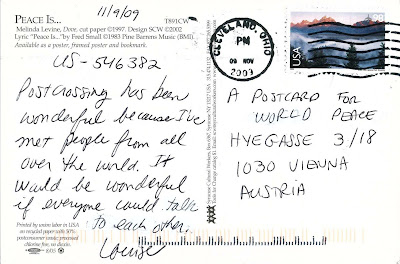 11/9/09
PEACE IS... T891CW
Melinda Levine, Dove, cut paper ©1997. Design SCW ©2002
Lyric "Peace Is..." by Fred Small ©1983 Pine Barrens Music (BMI)
Available as a poster, framed poster and bookmark.
US-546382
Postcrossing has been
wonderful because I've
met people from all
over the world. It
would be wonderful
if everyone could talk
to each other.
Louise
Printed by union labor in USA
on recycled paper with 50%
postconsumer waste, processed
chlorine free, no dioxin.
CLEVELAND, OHIO
PM
09 NOV
2009
A POSTCARD FOR
WORLD PEACE
HYEGASSE 3/18
1030 VIENNA
AUSTRIA